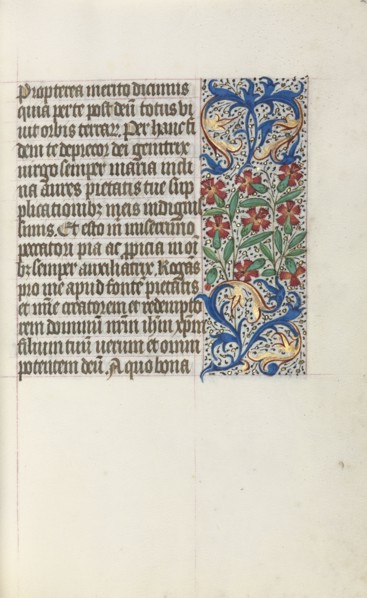 Propterea merito dicimus
quia per te post deū totus vi
uit orbis terrarꝝ. Per hanc fi
dem te deprecor dei genitrix
uirgo semper maria incli
na aures pietatis tue sup
plicationibꝫ meis indignis
simis. Et esto m̄ miserrimo
peccatori pia ac ꝓpicia in oī
bꝫ semper auxiliatrix. Rogās
pro me apud fonte pietatis
et m̄ie creatorem et redempto
rem dominū nr̄m ih̄m xp̄m
filium tuū uerum et omni
potentem deū. A quo bona